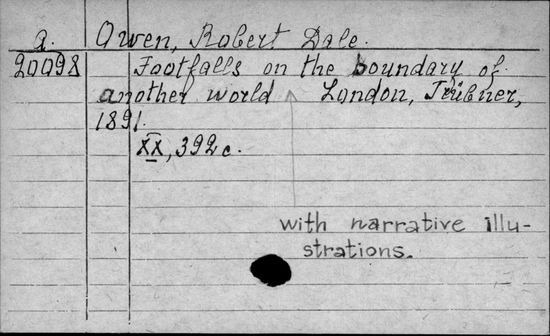 a. Owen, Robert Dale.
20098 Footfalls on the boundary of
another world London, Trübner,
1891.
XX, 392 c.
with narrative illu-
strations.